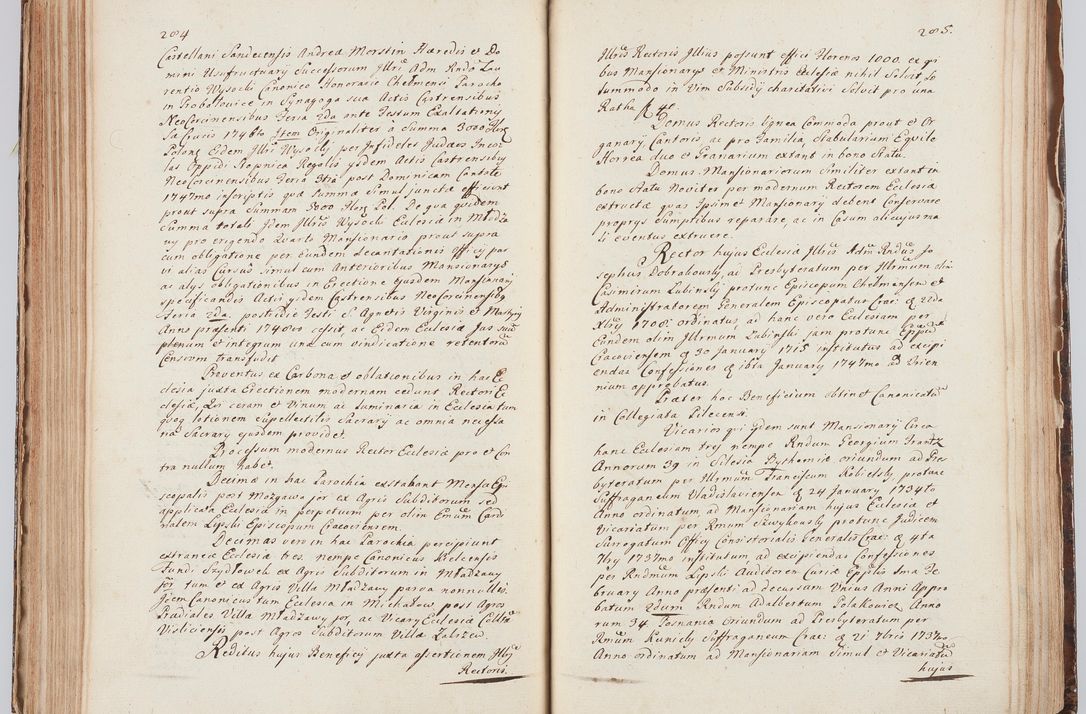 284
Castellani Sandecensis Andreæ Morstin Hæredis et Do
mini Usufructuary Successorum Illris Adm Rndo Lau
rentio Wysocki Canonico Honorario Chelmensi Parocho
in Probołovice in Synagoga sua Actis Castrensibus
NeoCorcinensibus Feria 2da ante Festum Exaltationis
Sæ Crucis 1746to Item Originaliter à Summa 3000 Flor
Polon Eidem Illri Wysocki per Infideles Judæos Incol
las Oppidi Ropnica Regalis ysdem Actis Castrensiby
NeoCorcinensibus Feria 3tia post Dominicam Cantate
1747mo inscriptis quæ Summæ Simul junctæ efficiunt
prout supra Summam 3800 Flor Pol De qua quidem
Summa totali Idem Illris Wysocki Ecclesiæ in Mładza
wy pro erigendo Quarto Mansionario prout supra
cum obligatione per eundem decantationis Officij par
vi alias Cursus Simul cum Anterioribus Mansionarys
ac alys obligationibus in Erectione ejusdem Mansionarij
specificandis Actis ysdem Castrensibus NeoCorcinensiby
Feria 2da postridie Festi S. Agnetis Virginis et Martyris
Anno præsenti 1748vo cessit, ac Eidem Ecclesiæ Jus suum
plenum et integrum una cum vindicatione retentorum
Censuum transfudit
Proventus ex Carbona et oblationibus in hac Ec
clesia juxta Erectionem modernam cedunt Rectori Ec
clesiæ, Qui ceram et Vinum ac Luminaria in Ecclesia tum
quoq lotionem Supellectilis Sacrary ac omnia necessa
ria Sacrary ejusdem providet.
Processum modernus Rector Ecclesiæ pro et Con
tra nullum habet.
Decimæ in hac Parochia extabant Mensæ Epi
scopalis post Możgawa jor ex Agris Subditorum sed
applicatæ Ecclesiæ in perpetuum per olim Emum Cardi
nalem Lipski Episcopum Cracoviensem.
Decimas vero in hac Parochia percipiunt
extraneæ Ecclesiæ tres. nempe Canonicus Kielcensis
Fundi Szydłowek ex Agris Subditorum in Mładzawy
jor tum et ex Agris Villa Mładzawy parva nonnullis.
Idem Canonicus tum Ecclesia in Michałow post Agros
Prædiales Villa Mładzawy jor, ac Vicary Ecclesiæ Collta
Visliciensis post Agros Subditorum Villa Zalizew.
Reditus hujus Beneficij juxta assertionem Illris
Rectoris.
285.
Illris Rectoris Illius possunt effici Florenos 1000. ex qui
bus Mansionarys et Ministris Ecclesiæ nihil Solvit, so
lummodo in Vim Subsidij charitativi Solvit pro una
Ratha f. 40
Domus Rectoris lignea Commoda prout et Or
ganary Cantoris ac pro Familia, Stabularium Equile
Horrea duo et Granarium extant in bono Statu.
Domus Mansionariorum Similiter extant in
bono Statu Noviter per modernum Rectorem Ecclesiæ
extructæ quas Ipsimet Mansionary debent Conservare
proprys Sumptibus reparare, ac in Casum alicujus ma
li eventus extruere.
Rector hujus Ecclesiæ Illris Adm Rndus Jo
sephus Dobrakowsky, ad Presbyteratum per Illrmum olim
Casimirum Lubinski protunc Episcopum Chelmensem et
Administratorem Generalem Episcopatus Crac: d 22da
Xbry 1708. ordinatus, ad hanc vero Ecclesiam per
Eundem olim Illrmum Lubinski jam protunc Eppum
Cracoviensem d 30 January 1715 institutus ad excipi
endas Confessiones d 16ta January 1747mo ad Trien
nium approbatus.
Præter hoc Beneficium obtinet Canonicatum
in Collegiata Pilecensi.
Vicarios qui ydem sunt Mansionarij Circa
hanc Ecclesiam tres nempe Rndum Georgium Frantz
Annorum 39 in Silesia Bythomiæ oriundum ad Pres
byteratum per Illrmum Franciscum Kobielsky protunc
Suffraganeum Vladislaviensem d 24 January 1734to
Anno ordinatum ad Mansionariam hujus Ecclesiæ et
Vicariatum per Rmum Szwykowsky protunc Judicem
Surrogatum Officij Consistorialis Generalis Crac: d 4ta
7bry 1737mo institutum ad excipiendas Confessiones
per Rndmum Lipski Auditorem Curiæ Eppalis 2ma Fe
bruary Anno præsenti ad decursum Unius Anni Appro
batum 2dum Rndum Adalbertum Polakowicz Anno
rum 34 Posnania Oriundum ad Presbyteratum per
Rmum Kunicky Suffraganeum Crac: d 21 7bris 1737mo
Anno ordinatum ad Mansionariam Simul et Vicariatum
hujus